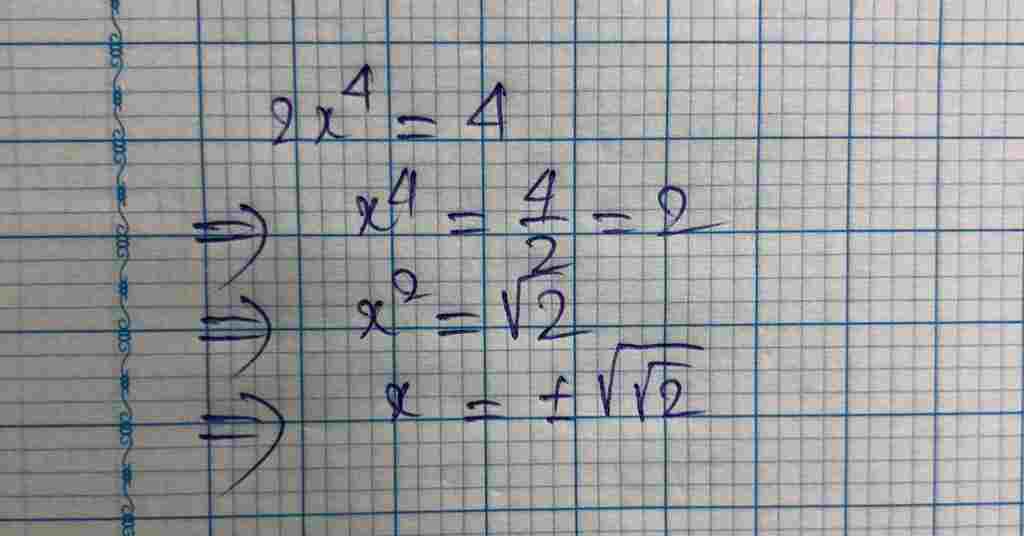 2x⁴ = 4
⇒ x⁴ = 4/2 = 2
⇒ x² = √2
⇒ x = ±√√2